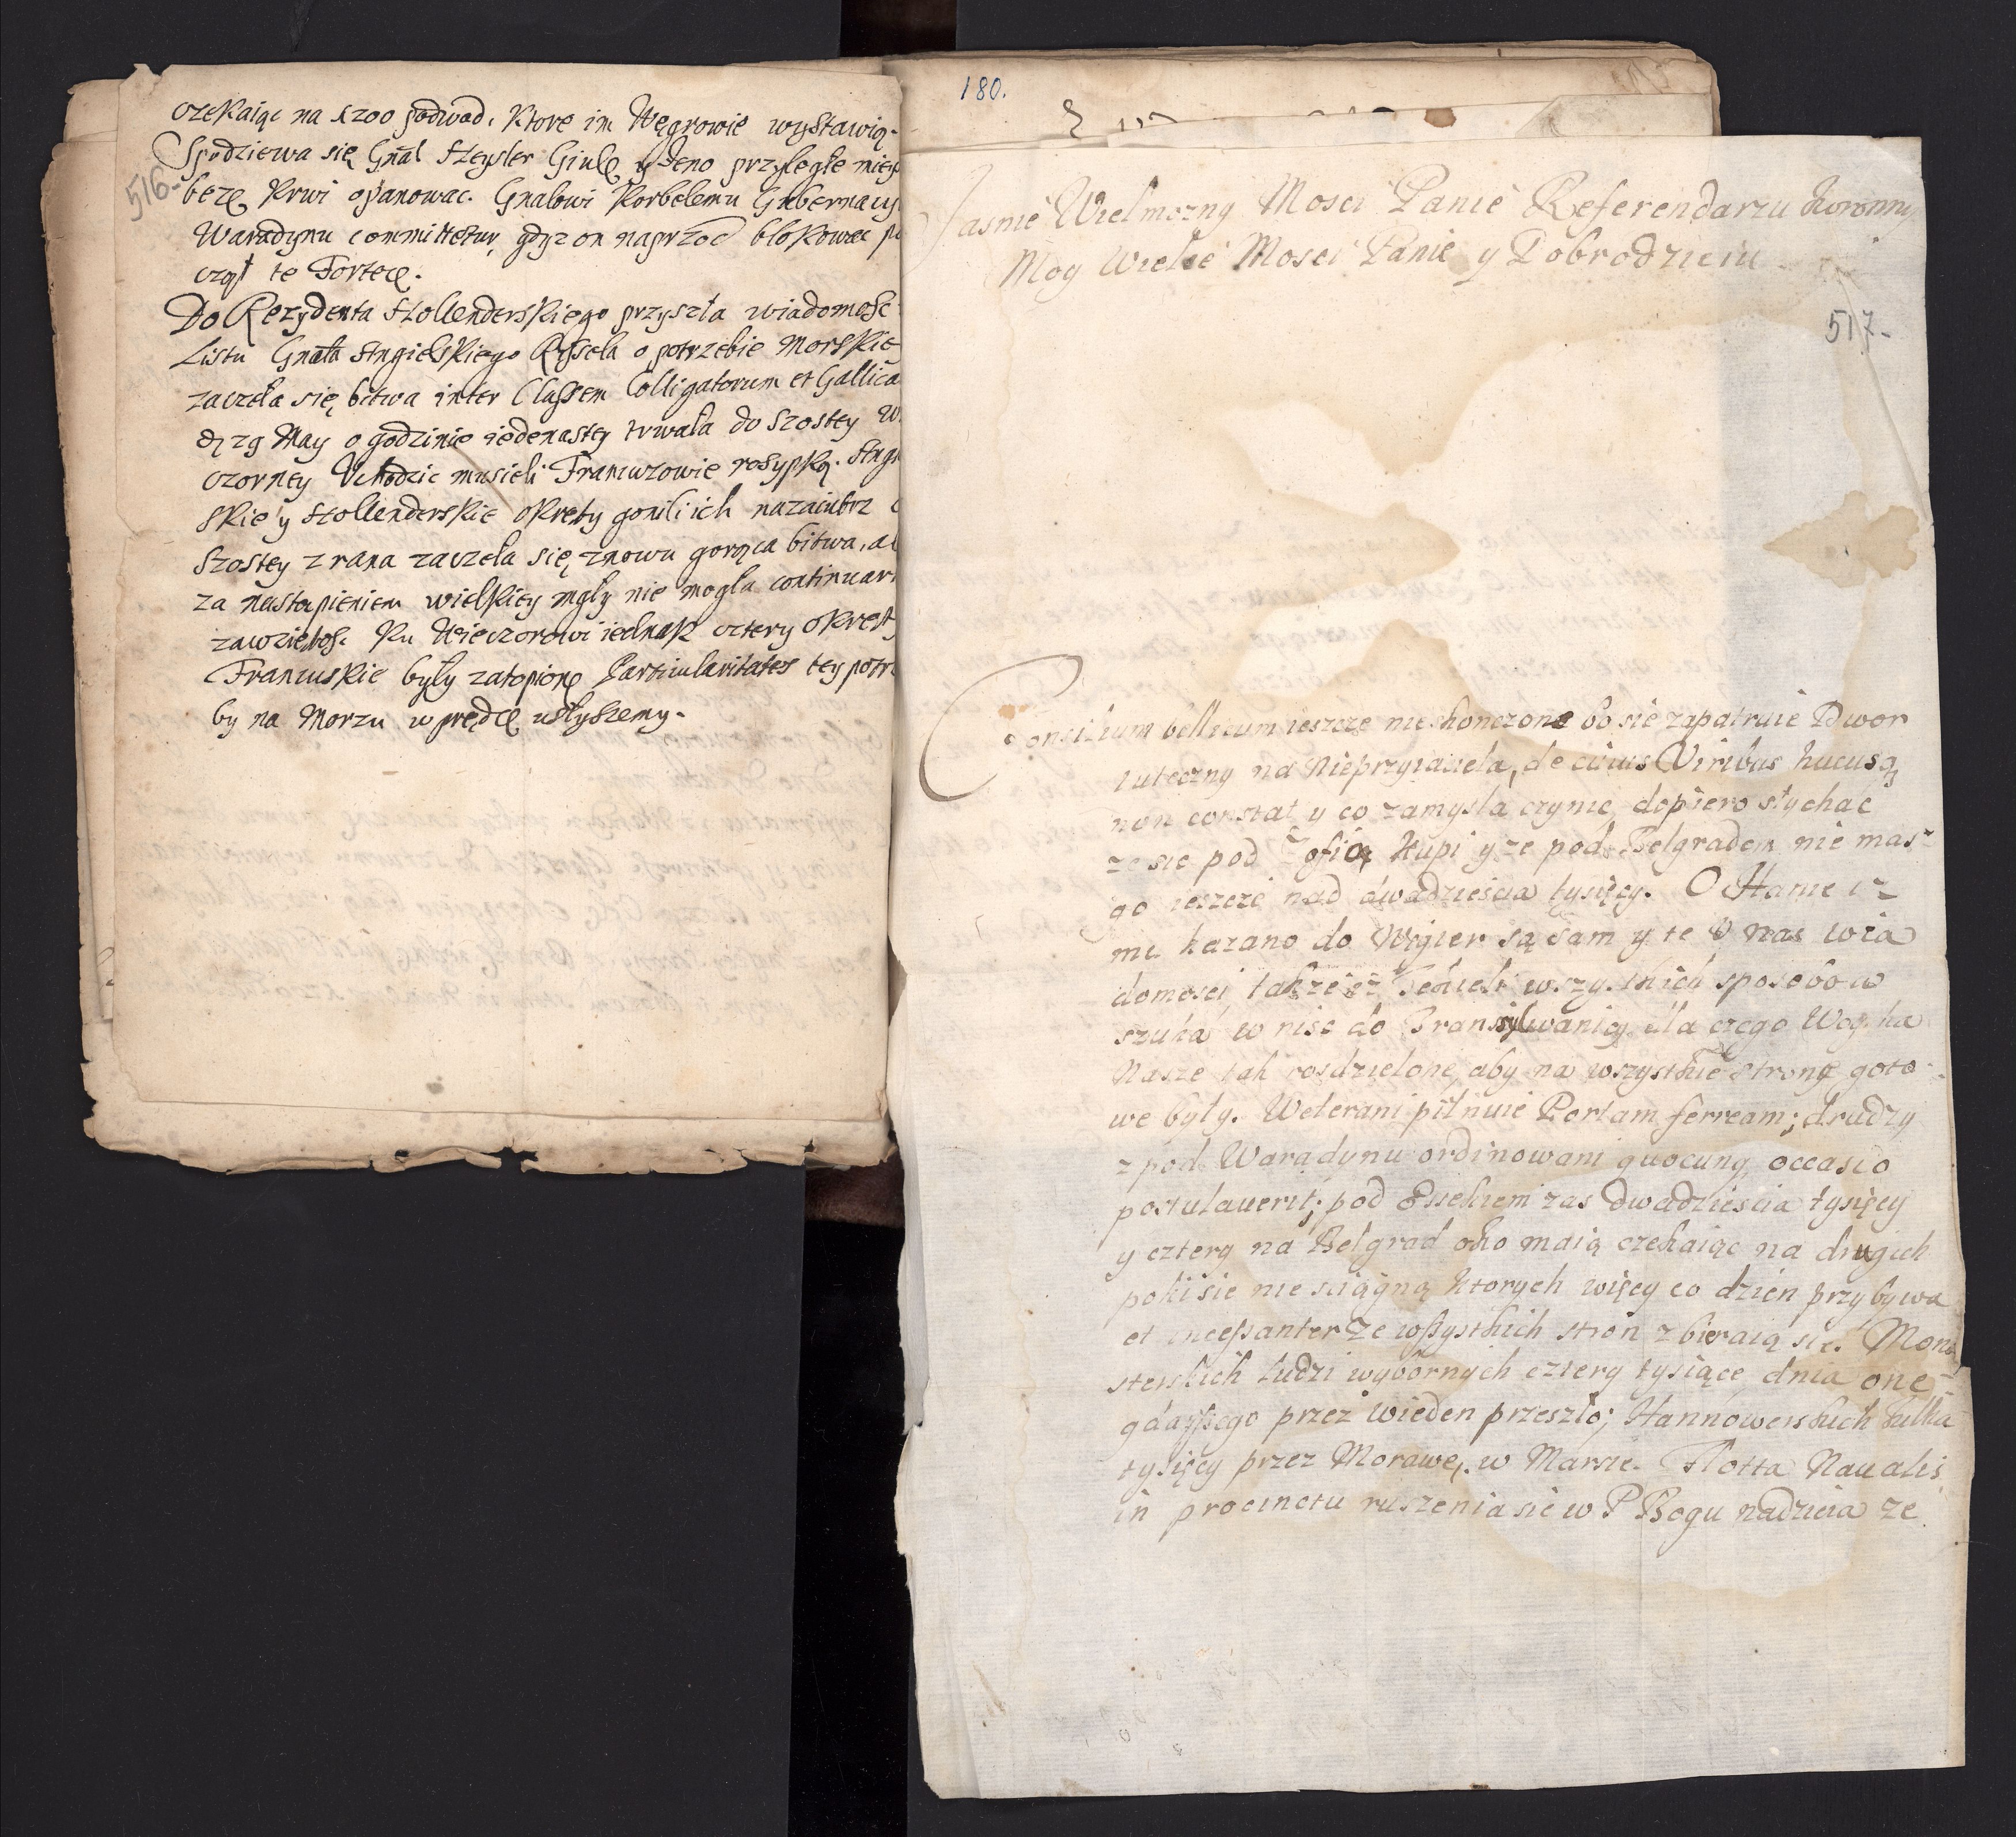 516.
czekaiąc na 1200 podwod, ktore im Węgrowie wystawią.
Spodziewa się Gnał Heysler Giulę y Jeno przyległe mieys
bezę krwi opanowac. Gnałowi Korbelemu Gubernacy
Waradynu committetur, gdyz on naprzod blokowac po
czął te Fortecę.
Do Rezydenta Hollenderskiego przyszła wiadomosc
Listu Gnała Angielskiego Russela o potrzebie Morskie
zaczeła się bitwa inter Classem Colligatorum et Gallica
dę 29 May o godzinie iedenastey trwała do Szostey w
czorney Uchodzic musieli Francuzowie rosypką. Angi
skie y Hollenderskie okręty gonili ich nazaiutrz
szostey z rana zaczeła się znowu gorąca bitwa, al
za nastąpieniem wielkiey mgły nie mogła continuari
zawziętosc. Ku Wieczorowi iednak cztery okręty
Francuskie były zatopionę Particularitates tey potrze
by na Morzu w prędcę usłyszemy.
180.
Jasnie Wielmozny Mosci Panie Referendarzu Koronny
Moy Wielce Mosci Panie y Dobrodzieiu
517.
Consilium bellicum ieszcze nieskonczone bo się zapatruie Dwor
tuteczny na Nieprzyiaciela, de cuius Viribus hucusq
non constat y co zamysla czynic, dopiero słychac
ze się pod Zofią kupi y ze pod Belgradem nie masz
go ieszcze nad dwadziescia tysięcy. O Hanie cz
mu kazano do Węgier są sam y te v nas wia
domosci, takze ze Tekieli wszystkich sposobow
szuka wnisc do Transylwaniey dla czego Woyska
Nasze tak rosdzielone, aby na wszystkie stronę goto
we były. Weterani pilnuie Portam ferream; drudzy
z pod Waradynu ordinowani quocunq occasio
postulauerit; pod Essekiem zas dwadziescia tysięcy
y cztery na Belgrad oko maią czekaiąc na drugich
poki się nie sciągną ktorych więcy co dzien przybywa
et incessanter ze wszystkich stron zbieraią się. Mona
sterskich ludzi wybornych cztery tysiące dnia one=
gdayszego przez wieden przeszło; Hannowerskich kilka
tysięcy przez Morawę w Marsie. Flotta Naualis
in procinctu ruszenia się w P Bogu nadzieia ze